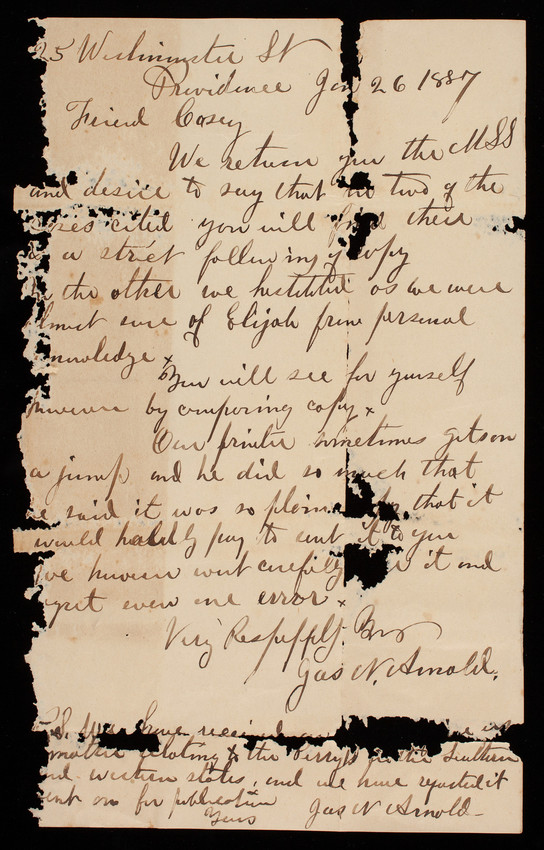 25 Westminster St
Providence Jan 26 1887
Friend Casey
We return you the MSS
and desire to say that in two of the
cases cited you will find their
a strict following of copy
the other we hesitated as we were
almost sure of Elijah from personal
knowledge x
You will see for yourself
however by comparing copy x
Our printer sometimes gets on
a jump and he did so much that
he said it was so plain that it
would hardly pay to sent it to you
we however went carefully it and
regret even one error x
Very Respectfly. Yours
Jas N. Arnold.
P.S. We have received
matter relating to the Perrys in the Southern
and western states, and we have
sent on for publication
Yours Jas N Arnold